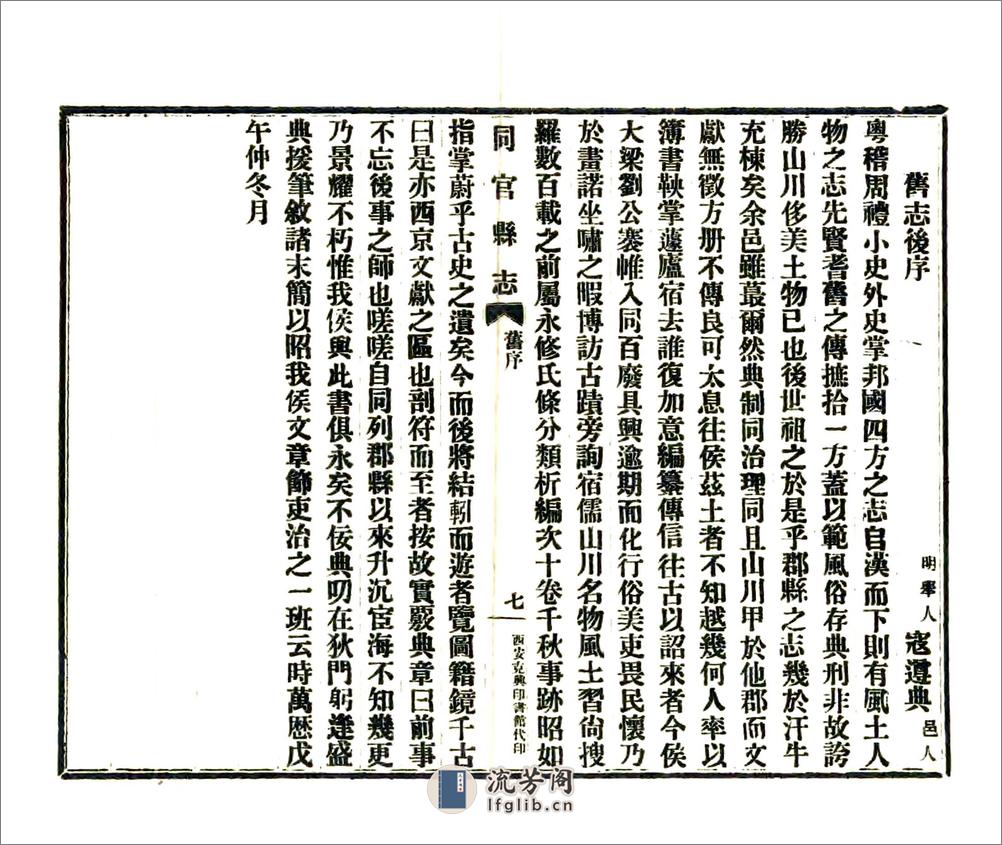 舊志後序
明舉人 寇遵典 邑人
粵稽周禮小史外史掌邦國四方之志自漢而下則有風土人
物之志先賢耆舊之傳摭拾一方蓋以範風俗存典刑非故誇
勝山川侈美土物已也後世祖之於是乎郡縣之志幾於汗牛
充棟矣余邑雖蕞爾然典制同治理同且山川甲於他郡而文
獻無徵方册不傳良可太息往侯茲土者不知越幾何人率以
簿書鞅掌蘧廬宿去誰復加意編纂傳信往古以詔來者今侯
大梁劉公褰帷入同百廢具興逾期而化行俗美吏畏民懷乃
於畫諾坐嘯之暇博訪古蹟旁詢宿儒山川名物風土習尙搜
羅數百載之前屬永修氏條分類析編次十卷千秋事跡昭如
同官縣志 舊序 七 西安克興印書館代印
指掌蔚乎古史之遺矣今而後將結軔而遊者覽圖籍鏡千古
曰是亦西京文獻之區也剖符而至者按故實覈典章曰前事
不忘後事之師也嗟嗟自同列郡縣以來升沉宦海不知幾更
乃景耀不朽惟我侯與此書俱永矣不佞典叨在狄門躬逢盛
典援筆敘諸末簡以昭我侯文章飾吏治之一班云時萬歷戊
午仲冬月
流芳阁
lfglib.cn